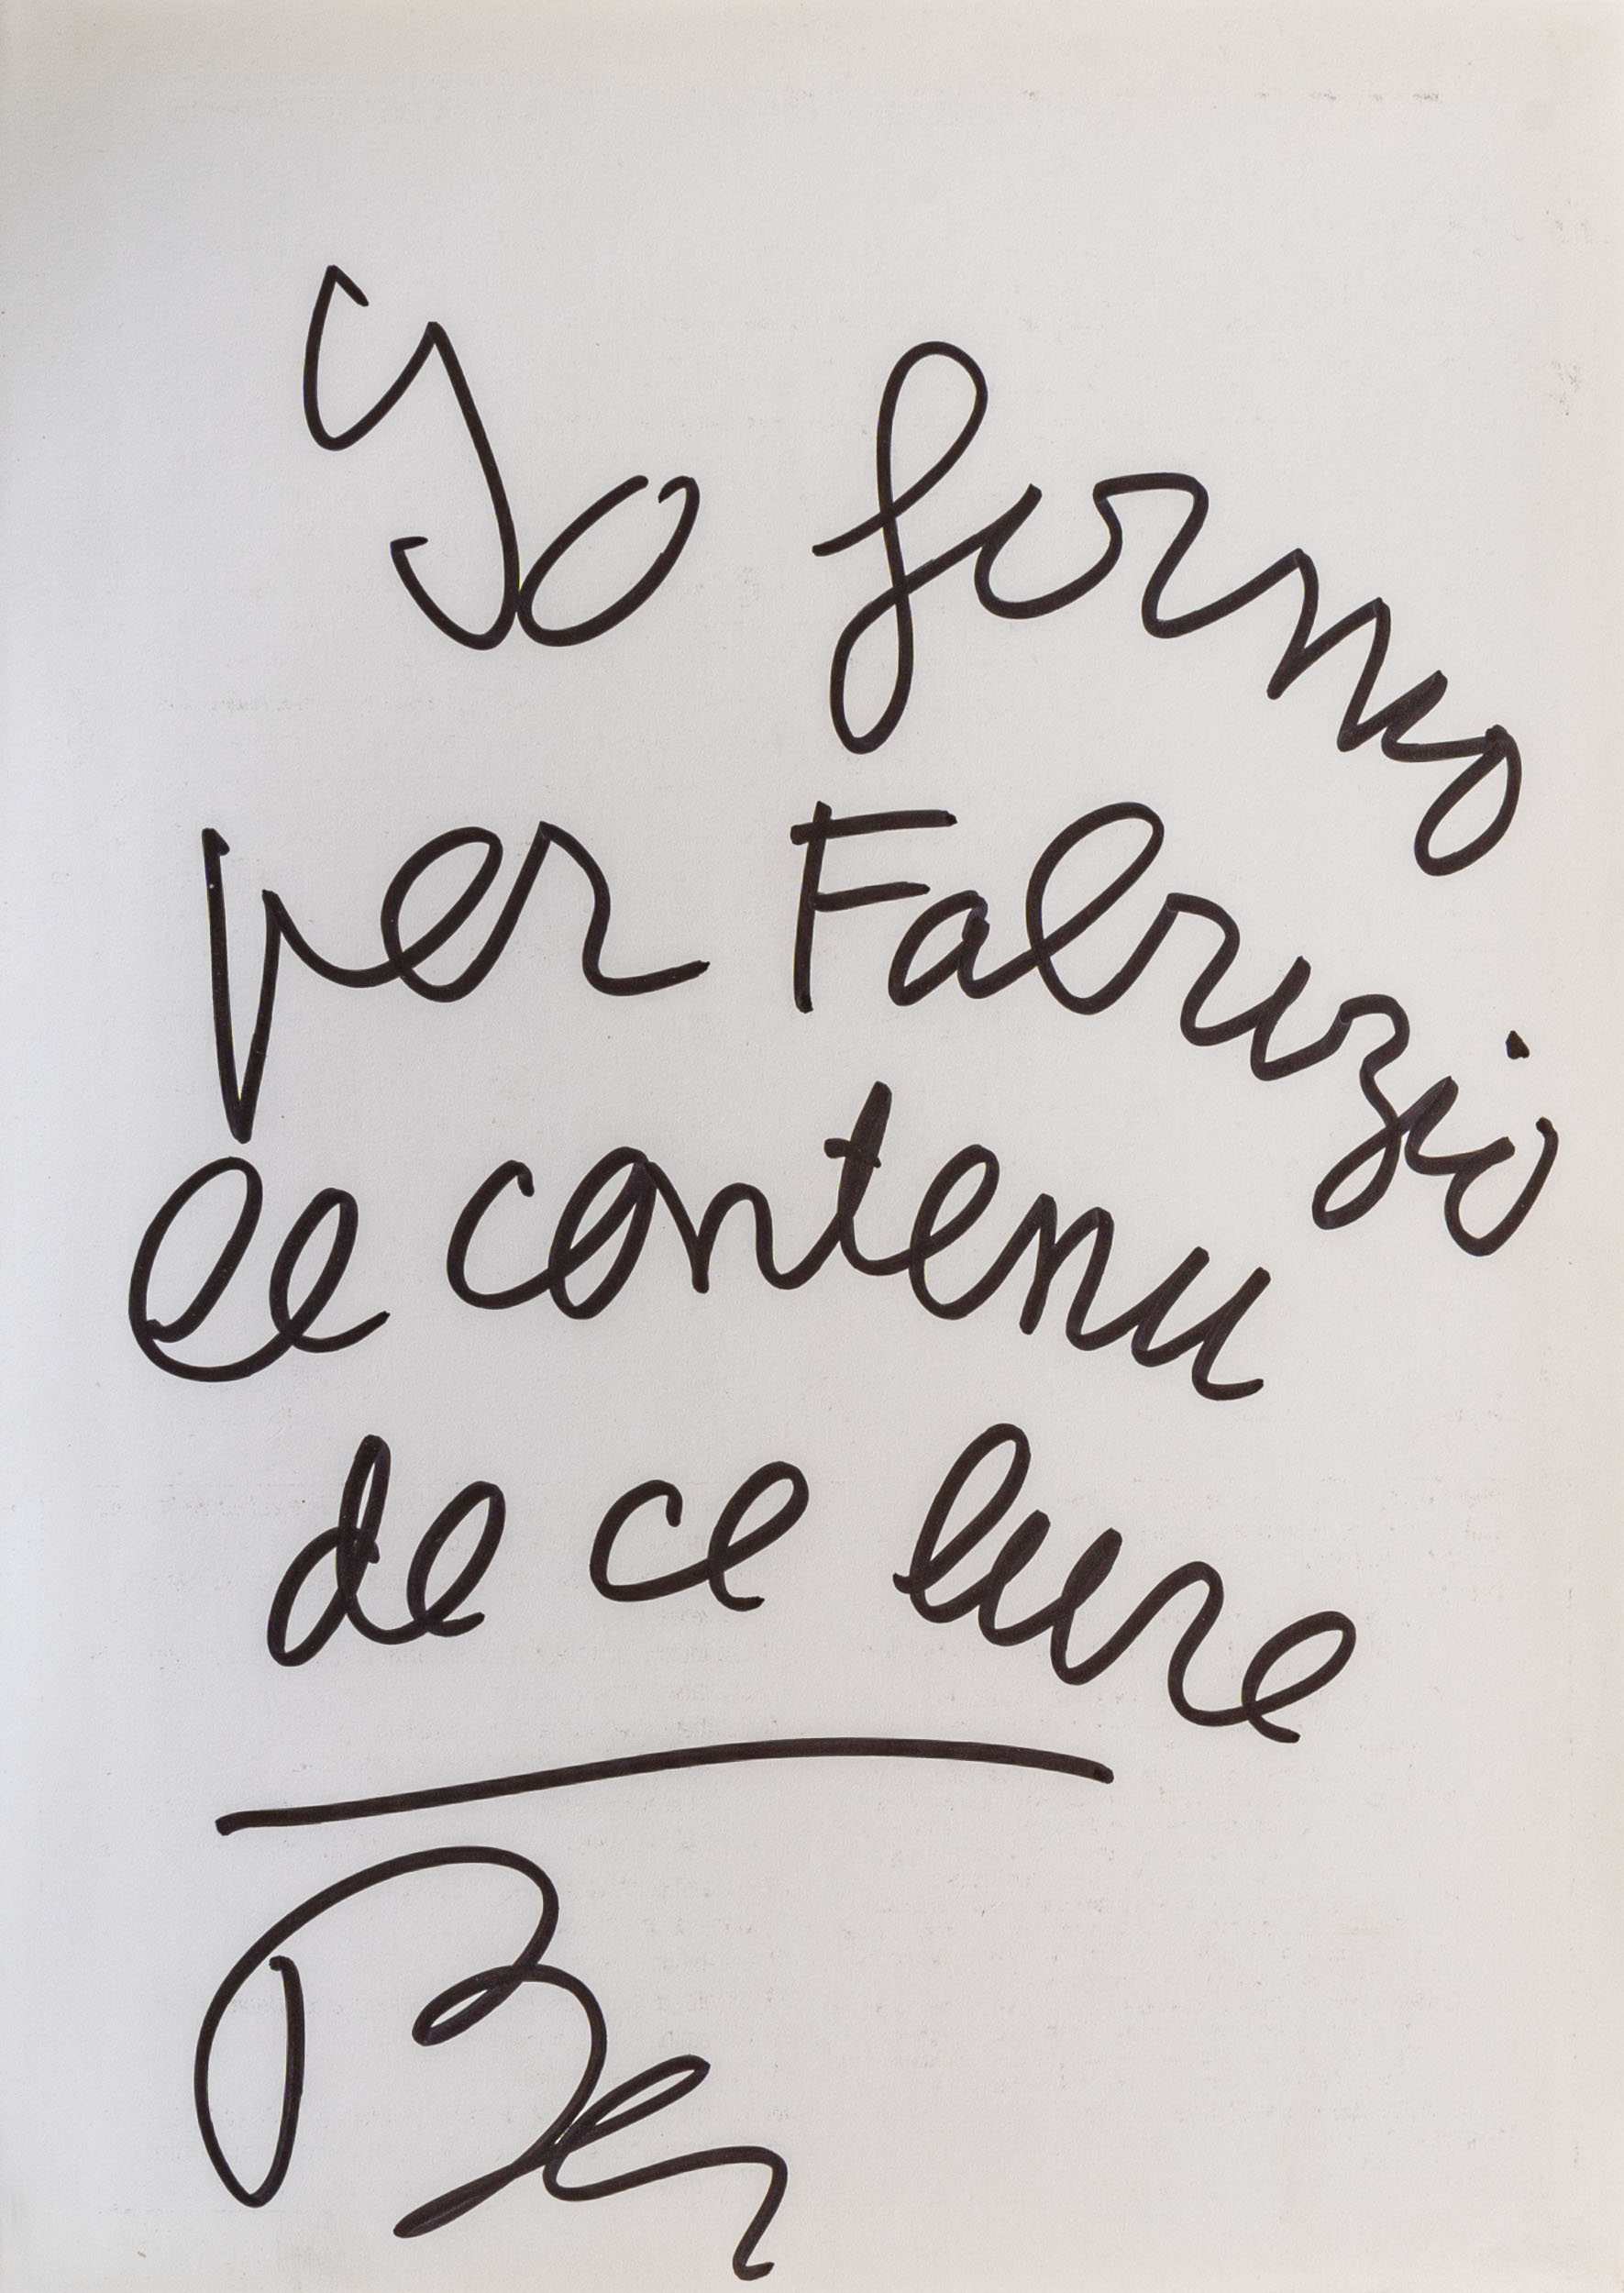 Yo firmo
per Fabrizio
le contenu
de ce livre
Ben